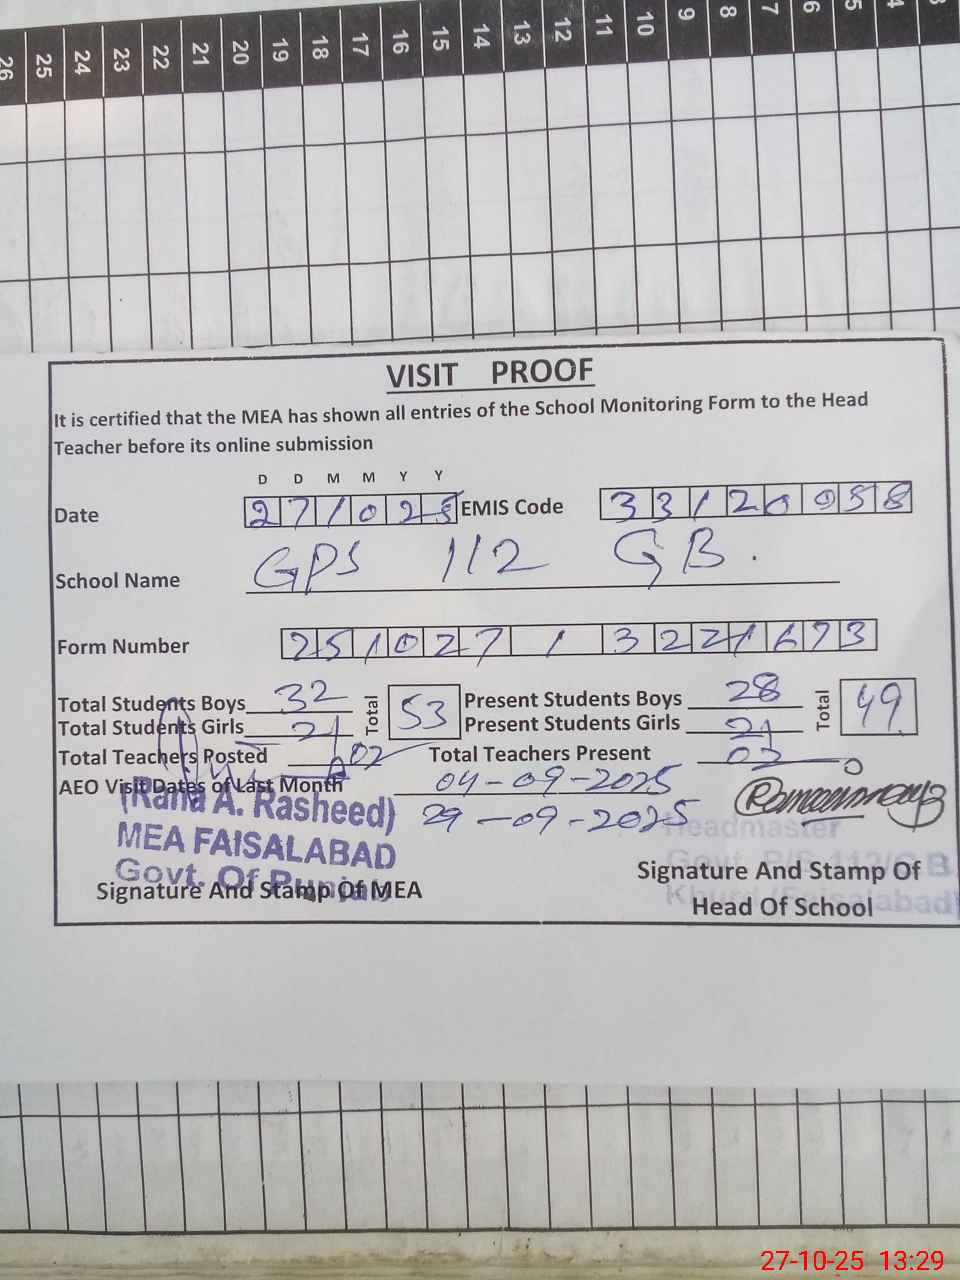 26 25 24 23 22 21 20 19 18 17 16 15 14 13 12 11 10 9 8 7 6 5 4 3
VISIT PROOF
It is certified that the MEA has shown all entries of the School Monitoring Form to the Head
Teacher before its online submission
D D M M Y Y
Date 271025 EMIS Code 33120058
School Name GPS 112 GB.
Form Number 251027/3221673
Total Students Boys 32 Total 53 Present Students Boys 28 Total 49
Total Students Girls 21 Present Students Girls 21
Total Teachers Posted 02 Total Teachers Present 02
AEO Visit Dates of Last Month 04-09-2025
29-09-2025
(Rana A. Rasheed)
MEA FAISALABAD
Govt. Of Punjab
Signature And Stamp Of MEA
Headmaster
Govt. P/S 112/G.B.
Khurd (Faisalabad)
Signature And Stamp Of
Head Of School
27-10-25 13:29